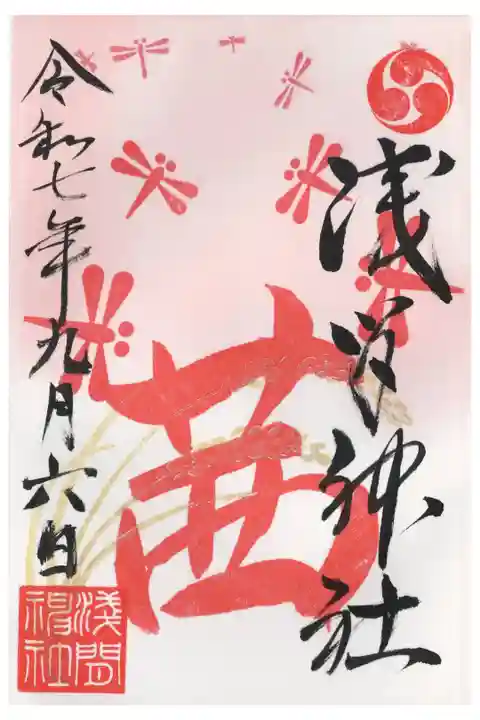 浅間神社
茜
令和七年九月六日
淺間
神社